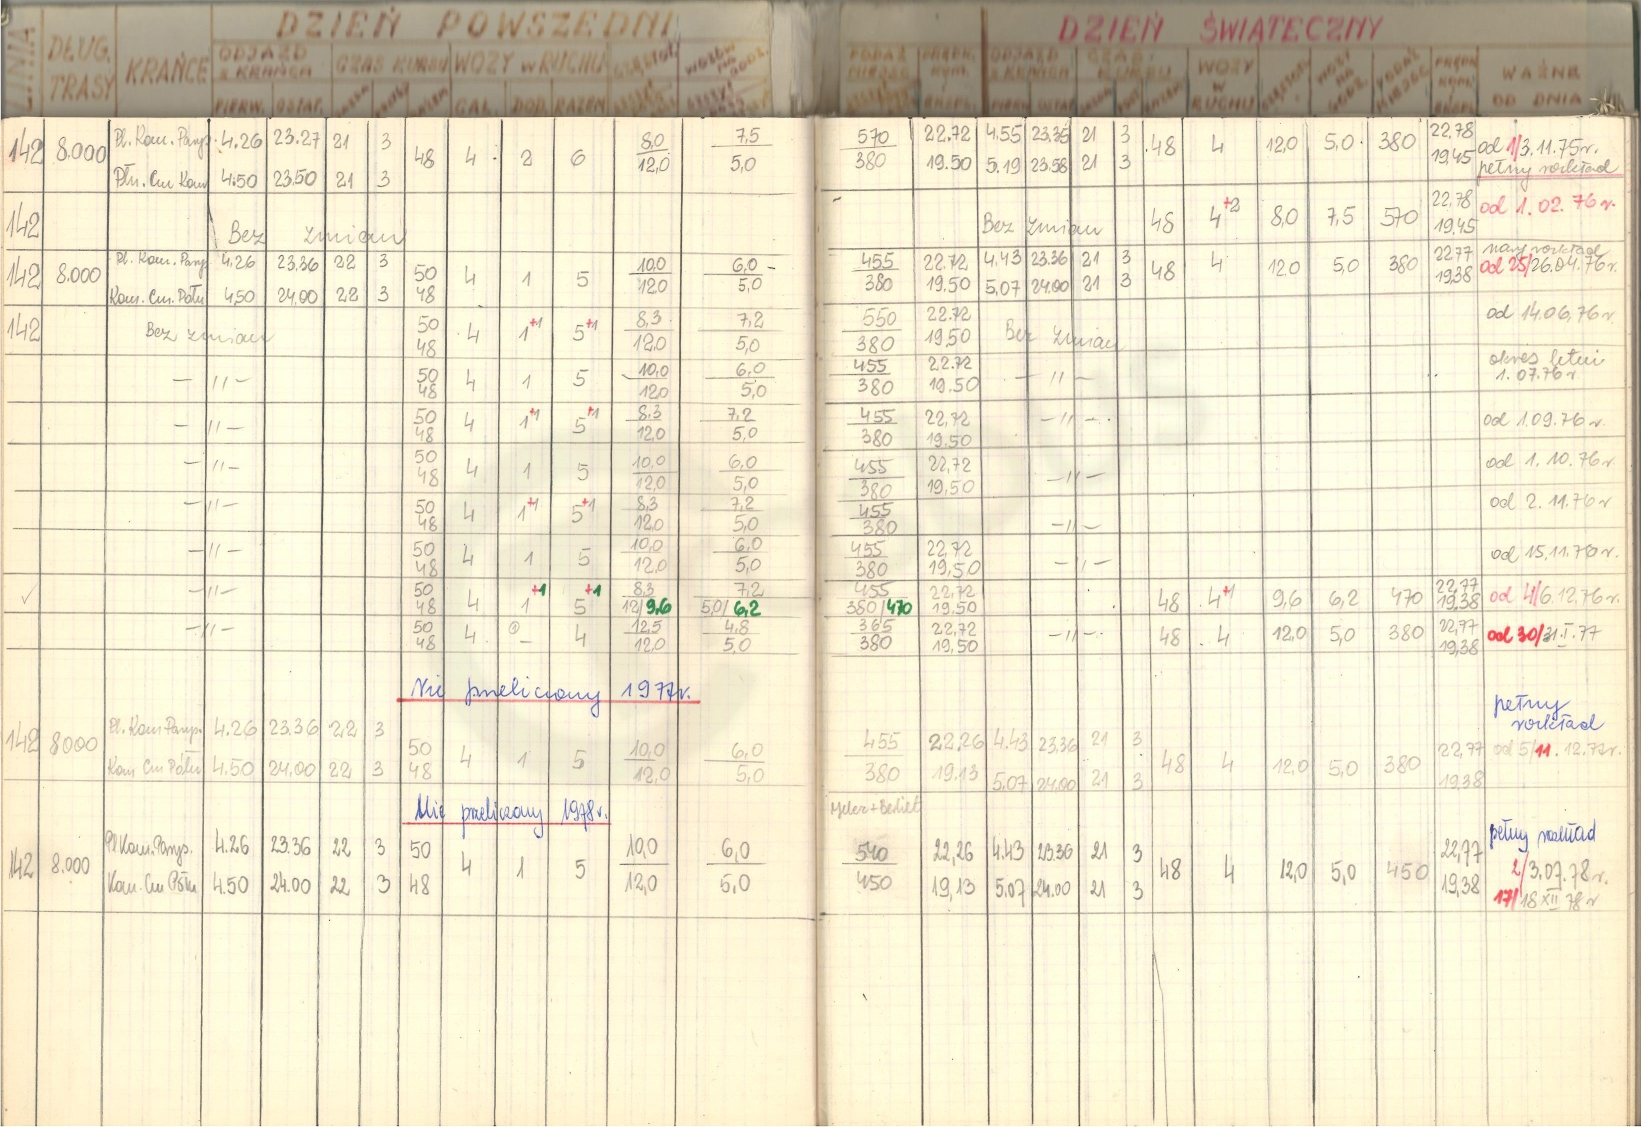 DZIEŃ POWSZEDNI DZIEŃ ŚWIĄTECZNY
LINIA DŁUG. TRASY KRAŃCE ODJAZD z KRAŃCA CZAS KURSU WOZY w RUCHU PODAŻ MIEJSC PRĘDK. KOM. EKSPL. ODJAZD z KRAŃCA CZAS KURSU WOZY W RUCHU WAŻNE OD DNIA
PIERW. OSTAT. CAŁ. DOD. RAZEM
142 8.000 Pl. Kom. Parys. 4.26 23.27 21 3 48 4 2 6 8,0 7,5 570 22.72 4.55 23.35 21 3 48 4 12,0 5,0 380 22,78 od 1/3.11.75r.
Płn. Cm Kom 4.50 23.50 21 3 12,0 5,0 380 19.50 5.19 23.58 21 3 19,45 pełny rozkład
142 Bez zmian Bez zmian 48 4+2 8,0 7,5 570 22,78 od 1.02.76r.
19,45
142 8.000 Pl. Kom. Parys 4.26 23.36 22 3 50 4 1 5 10,0 6,0 455 22.72 4.43 23.36 21 3 48 4 12,0 5,0 380 22,77 nowy rozkład
Kom. Cm. Połn 4,50 24.00 22 3 48 12,0 5,0 380 19.50 5,07 24.00 21 3 19,38 od 25/26.04.76r.
142 Bez zmian 50 4 1+1 5+1 8,3 7,2 550 22.72 Bez zmian od 14.06.76r
48 12,0 5,0 380 19,50
— 〃 — 50 4 1 5 10,0 6,0 455 22.72 — 〃 — okres letni
48 12,0 5,0 380 19.50 1.07.76r.
— 〃 — 50 4 1+1 5+1 8,3 7,2 455 22,72 — 〃 — od 1.09.76r.
48 12,0 5,0 380 19.50
— 〃 — 50 4 1 5 10,0 6,0 455 22,72 — 〃 — od 1.10.76r
48 12,0 5,0 380 19,50
— 〃 — 50 4 1+1 5+1 8,3 7,2 455 — 〃 — od 2.11.76r
48 12,0 5,0 380
— 〃 — 50 4 1 5 10,0 6,0 455 22,72 — 〃 — od 15.11.76r.
48 12,0 5,0 380 19,50
✓ — 〃 — 50 4 1+1 5+1 8,3 7,2 455 22,72 48 4+1 9,6 6,2 470 22,77 od 4/6.12.76r.
48 12/9,6 5,0/6,2 380/470 19.50 19,38
— 〃 — 50 4 – 4 12,5 4,8 365 22,72 — 〃 — 48 4 12,0 5,0 380 22,77 od 30/31.I.77
48 12,0 5,0 380 19,50 19,38
Nie przeliczony 1977r.
pełny rozkład
142 8000 Pl. Kom Parys. 4.26 23.36 22 3 50 4 1 5 10,0 6,0 455 22,26 4.43 23.36 21 3 48 4 12,0 5,0 380 22,77 od 5/11.12.77r.
Kom Cm Połn 4.50 24.00 22 3 48 12,0 5,0 380 19.13 5.07 24.00 21 3 19,38
Nie przeliczony 1978r.
Jelcz + Berliet
142 8.000 Pl Kom. Parys. 4.26 23.36 22 3 50 4 1 5 10,0 6,0 540 22,26 4.43 23.36 21 3 48 4 12,0 5,0 450 22,77 pełny rozkład
Kom. Cm Połn 4.50 24.00 22 3 48 12,0 5,0 450 19,13 5.07 24.00 21 3 19,38 2/3.07.78r.
17/18 XII 78r